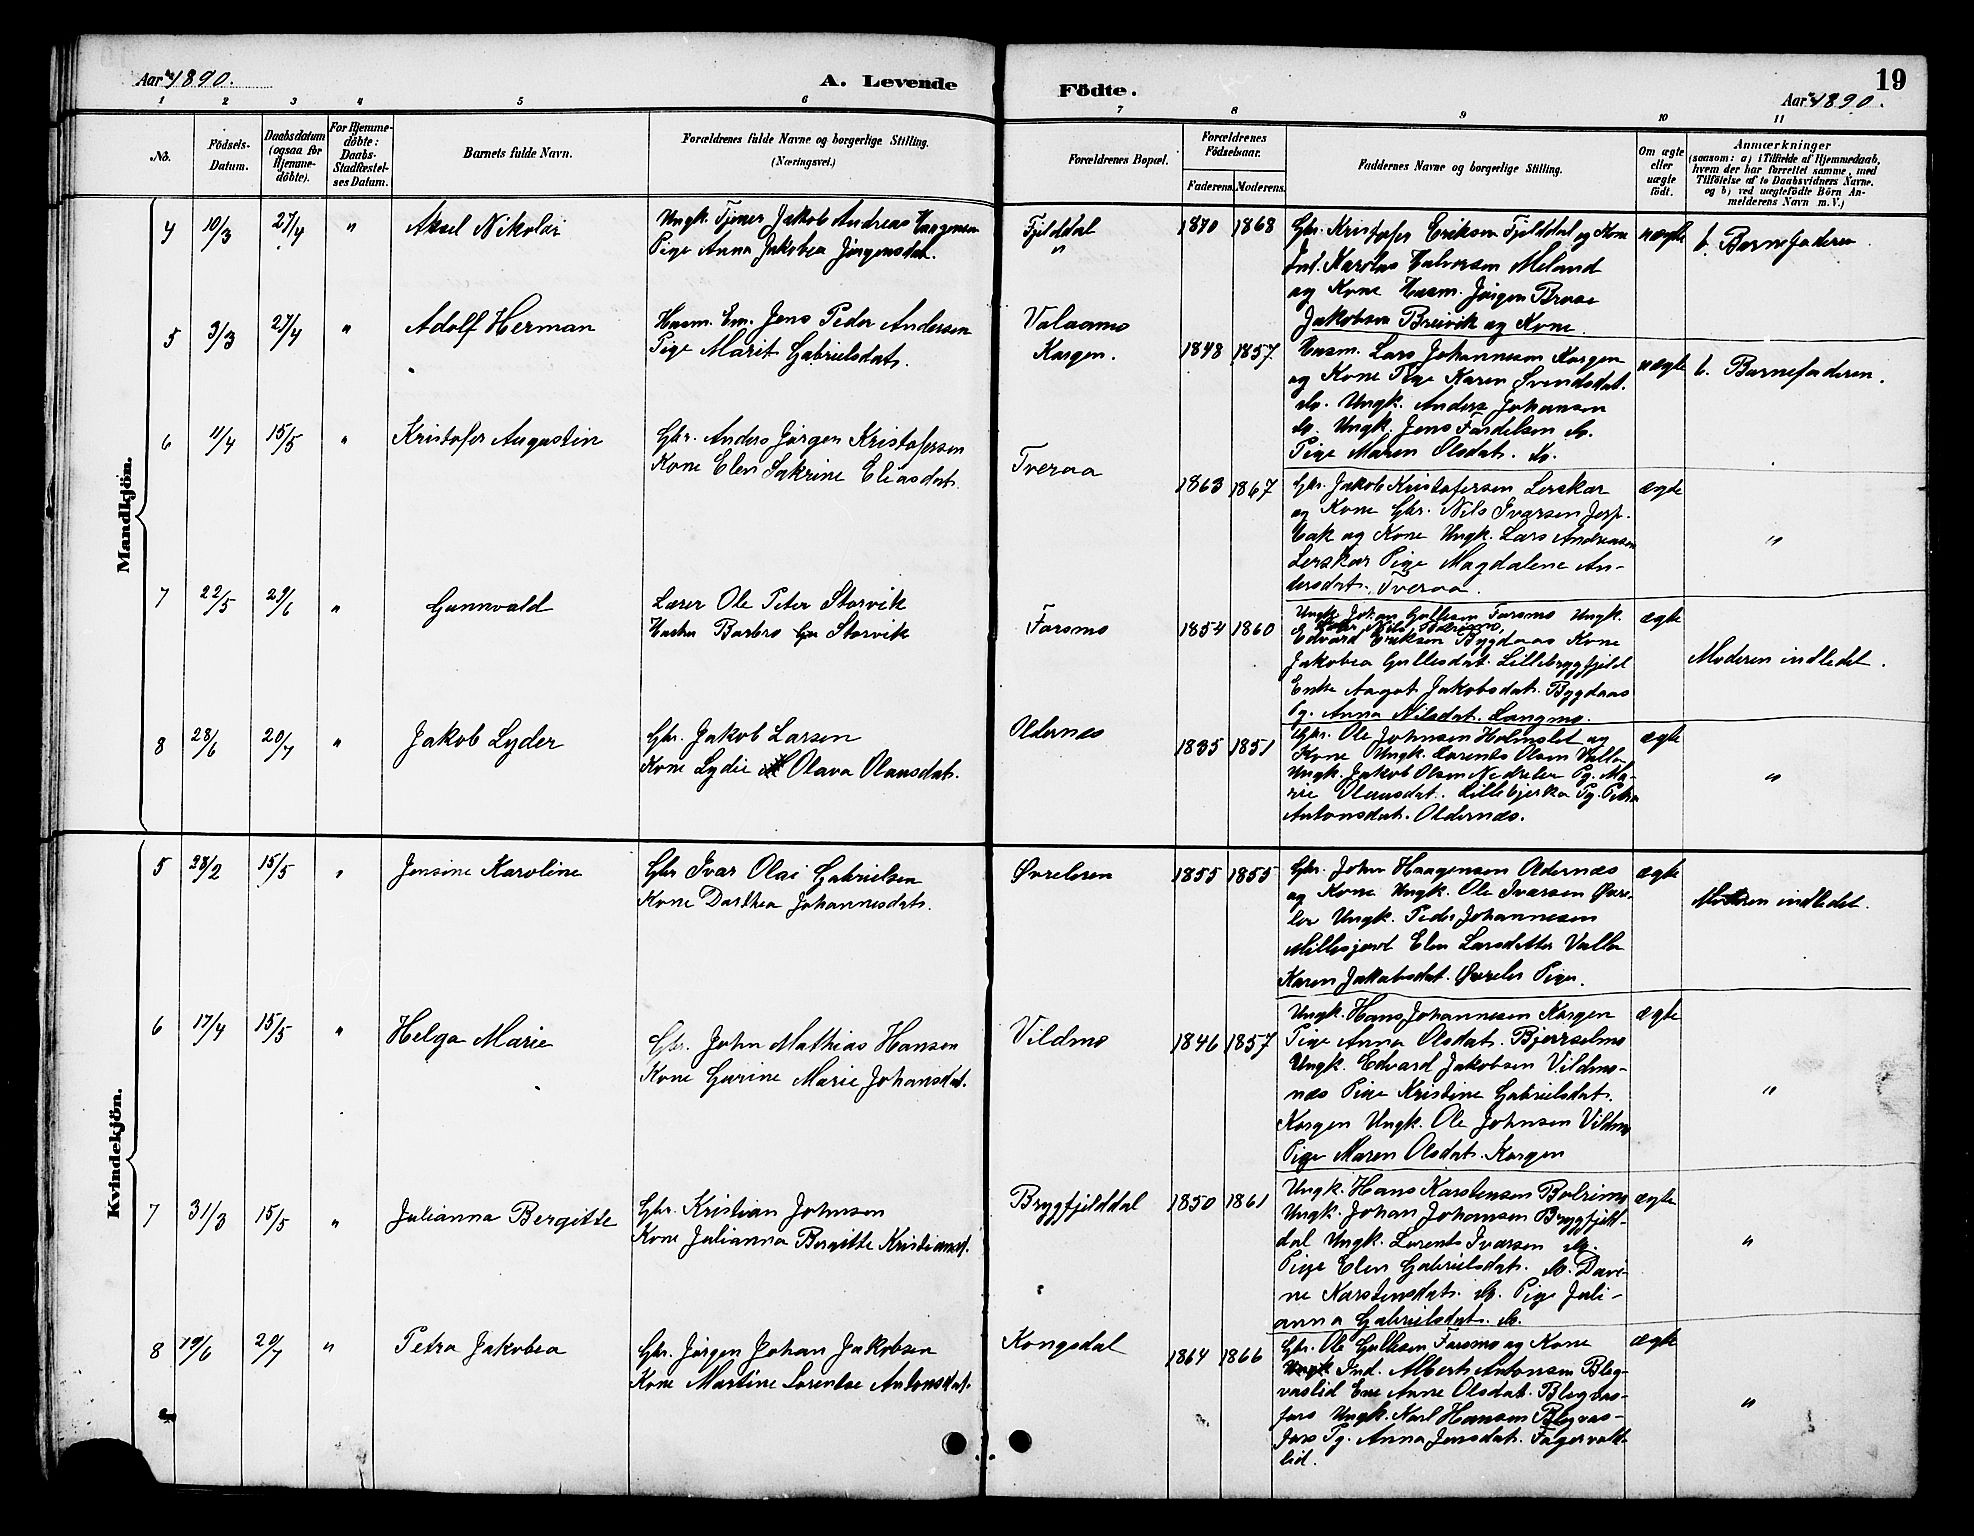 Aar 1890.
A. Levende
Födte.
19
Aar 1890.
1 2 3 4 5 6 7 8 9 10 11
No.
Födsels-Datum.
Daabsdatum (ogsaa for Hjemme-döbte).
For Hjemme-döbte: Daabs-Stadfæstel-ses Datum.
Barnets fulde Navn.
Forældrenes fulde Navne og borgerlige Stilling.
(Næringsvei.)
Forældrenes Bopæl.
Forældrenes Födselsaar.
Faderens. Moderens.
Faddernes Navne og borgerlige Stilling.
Om ægte eller uægte födt.
Anmærkninger
(saasom: a) i Tilfælde af Hjemmedaab,
hvem der har forrettet samme, med
Tilföielse af to Daabsvidners Navne.
og b) ved uegtefödte Börn An-
melderens Navn m. V.)
Mandkjön.
4 10/3 27/4 " Aksel Nikolai
Ungk. Tjener Jakob Andreas
Pige Anna Jakobea Jörgensdat.
Fjelddal
"
1870 1868
Gbr. Kristofer Eriksen Fjelddal og Kone
Ind. Karolus Halvorsen Meland
og Kone Husm. Jörgen
Jakobsen Breivik og Kone.
uægte
b. Barnefaderen
5 3/3 27/4 " Adolf Herman
Husm. Em. Jens Peder Andersen
Pige Marit Gabrielsdat.
Valaamo
Korgen.
1848 1857
Husm. Lars Johannesen Korgen
og Kone Pige Karen Svendsdat.
do. Ungk. Anders Johansen
do. Ungk. Jens do.
Pige Maren Olsdat. do.
uægte
b. Barnefaderen.
6 11/4 15/5 " Kristofer Augustin
Gbr. Anders Jörgen Kristofersen
Kone Elen Sakrine Eliasdat.
Tveraa
1863 1867
Gbr. Jakob Kristofersen Lerskar
og Kone Gbr. Nils Ivarsen Jerp-
bak og Kone Ungk. Lars Andreasen
Lerskar Pige Magdalene An-
dersdat. Tveraa.
ægte
"
7 22/5 29/6 " Gunnvald
Lærer Ole Peter Storvik
Hustru Barbro Storvik
Farsmo
1854 1860
Ungk. Johan Gullesen Farsmo Ungk.
Edvard Eriksen Bygdaas Kone
Jakobea Gullesdat. Lillebryggfjeld
Enke Aagot Jakobsdat. Bygdaas
Pg. Anna Nilsdat. Langmo.
ægte
Moderen indledet.
8 28/6 20/7 " Jakob Lyder
Gbr. Jakob Larsen
Kone Lydie Olava Olausdat.
Oldernes
1835 1851
Gbr. Ole Johnsen Holmslet og
Kone Ungk. Lorents Olsen Valla
Ungk. Jakob Olsen Nedreler Pg. Ma-
rie Olausdat. Lillebjerka Pg. Petra
Antonsdat. Oldernæs.
ægte
"
Kvindekjön.
5 28/2 15/5 " Jensine Karoline
Gbr Ivar Olai Gabrielsen
Kone Dorthea Johannesdat.
Øvreleren
1855 1855
Gbr. John Haagensen Oldernæs
og Kone Ungk. Ole Ivarsen Øvre-
ler Ungk. Peder Johannesen
Elen Larsdatter Valla
Karen Jakobsdat. Øvreler Pige.
ægte
Moderen indledet.
6 17/4 15/5 " Helga Marie
Gbr. John Mathias Hansen
Kone Gurine Marie Johansdat.
Vildmo
1846 1857
Ungk. Hans Johannesen Korgen
Pige Anna Olsdat. Bjerrselmo
Ungk. Edvard Jakobsen Vildmo-
næs Pige Kristine Gabrielsdat.
Korgen Ungk. Ole Johnsen Vildmo
Pige Maren Olsdat. Korgen
ægte
"
7 31/3 15/5 " Julianna Bergitte
Gbr. Kristian Johnsen
Kone Julianna Bergitte Kristiansd.
Bryggfjelddal
1850 1861
Ungk. Hans Karstensen Bolrimo
Ungk. Johan Johansen Bryggfjeld-
dal Ungk. Lorents Ivarsen do.
Pige Elen Gabrielsdat. do. Davi-
ne Karstensdat. do. Pige Juli-
anna Gabrielsdat. do.
ægte
"
8 19/6 20/7 " Petra Jakobea
Gbr. Jörgen Johan Jakobsen
Kone Martine Lorentse Antonsdat.
Kongsdal
1864 1866
Gbr. Ole Gullesen Farsmo og Kone
Ind. Albert Antonsen Bleg-
vaslid Anne Olsdat. Blegvas-
fors Ungk. Karl Hansen Blegvas-
fors Pg. Anna Jensdat. Fagervatt-
lid.
ægte
"